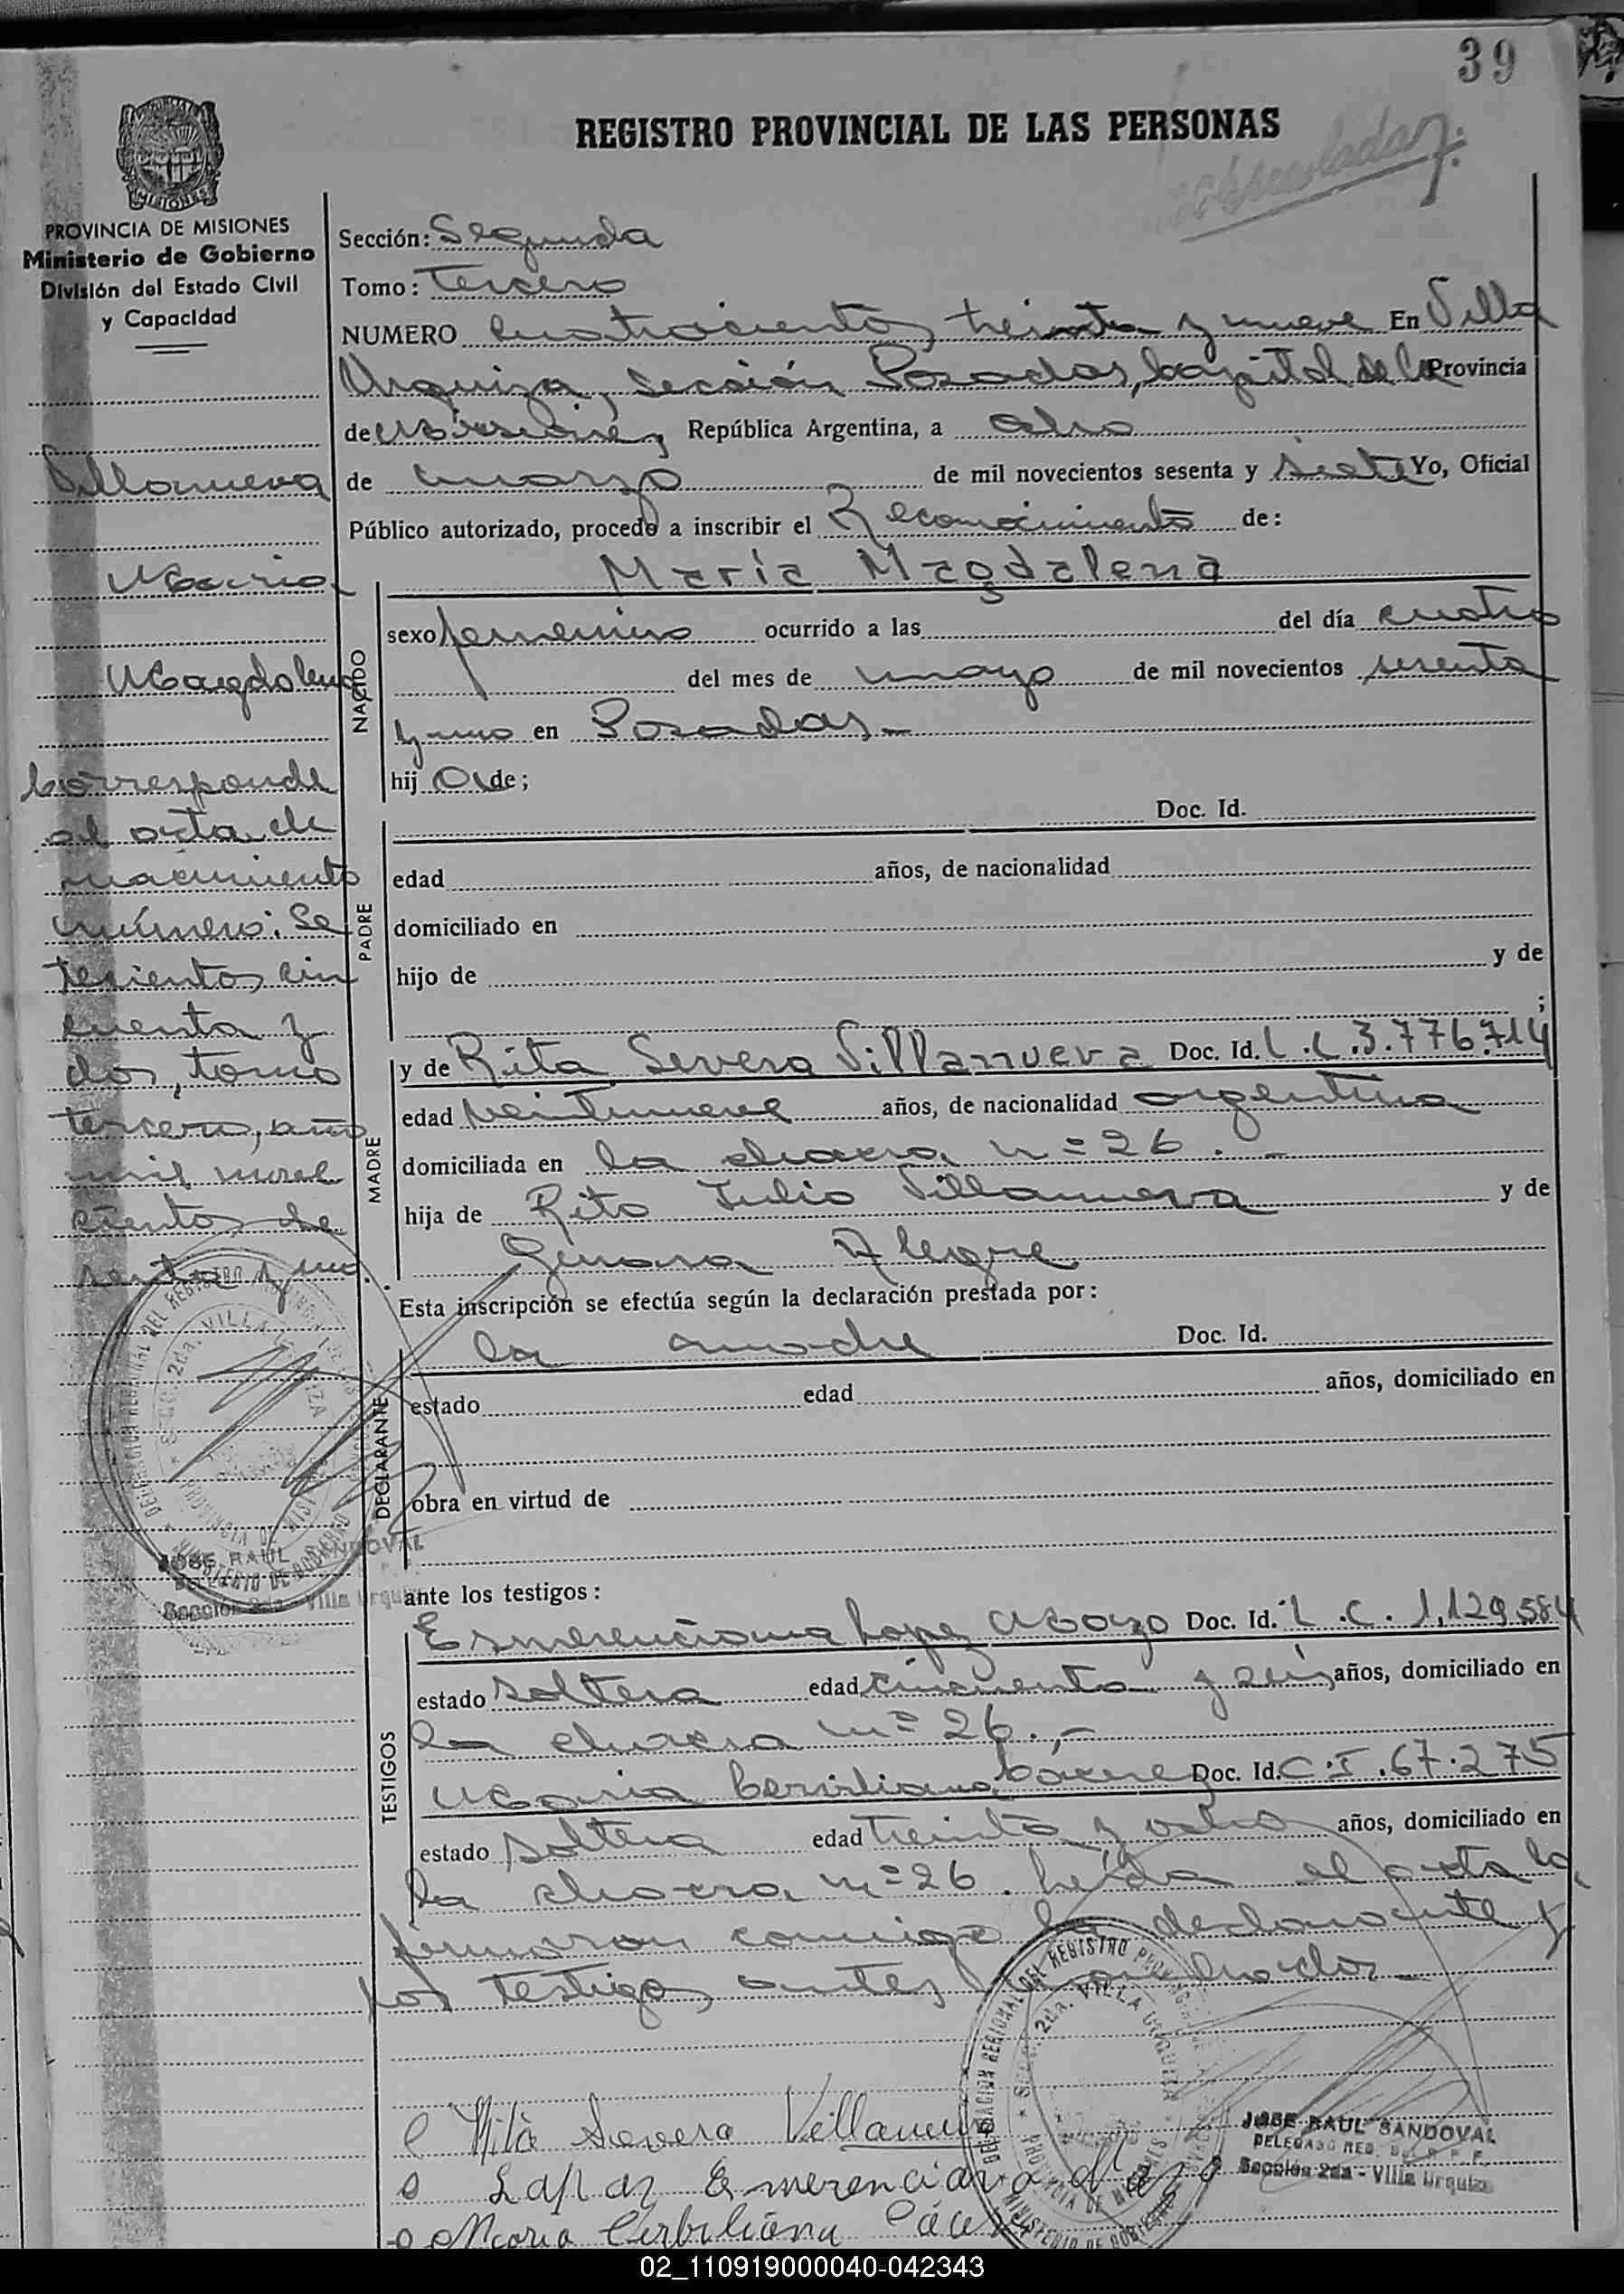 39
REGISTRO PROVINCIAL DE LAS PERSONAS
MISIONES
PROVINCIA DE MISIONES
Ministerio de Gobierno
División del Estado Civil
y Capacidad
Sección: Segunda
Tomo: Tercero
NUMERO Cuatrocientos treinta y nueve En Villa
Urquiza, Sección Posadas, Capital de la Provincia
de Misiones, República Argentina, a ocho
de marzo de mil novecientos sesenta y siete Yo, Oficial
Público autorizado, procedo a inscribir el Reconocimiento de:
Villanueva
Maria
Magdalena
Corresponde
al acta de
nacimiento
número: Se
tecientos cin
cuenta y
dos, tomo
tercero, año
mil nove
cientos se
senta y uno.
NACIDO
María Magdalena
sexo femenino ocurrido a las del día cuatro
del mes de mayo de mil novecientos sesenta
y uno en Posadas.-
hij a de;
PADRE
Doc. Id.
edad años, de nacionalidad
domiciliado en
hijo de y de
;
MADRE
y de Rita Severa Villanueva Doc. Id. L.C. 3.776.714
edad veintinueve años, de nacionalidad argentina
domiciliada en la chacra nº 26.-
hija de Rito Julio Villanueva y de
Genara Alegre
Esta inscripción se efectúa según la declaración prestada por:
DECLARANTE
la madre Doc. Id.
estado edad años, domiciliado en
obra en virtud de
JOSE RAUL SANDOVAL
Sección 2da - Villa Urquiza
ante los testigos:
TESTIGOS
Esmerenciana Lopez Doc. Id. L.C. 1.129.584
estado soltera edad cincuenta y seis años, domiciliado en
la chacra nº 26.-
Maria Cáceres Doc. Id. C.I. 67.275
estado soltera edad treinta y ocho años, domiciliado en
la chacra nº 26. Leída el acta la
firmaron conmigo la declarante y
los testigos antes nombrados.-
DELEGACION REGIONAL DEL REGISTRO
Secc. 2da. VILLA URQUIZA
PROVINCIA DE MISIONES
MINISTERIO DE GOBIERNO
Rita Severa Villanueva
Lopez Esmerenciana
Maria Cáceres
JOSE RAUL SANDOVAL
DELEGADO REG. DEL R. P. P.
Sección 2da - Villa Urquiza
02_110919000040-042343